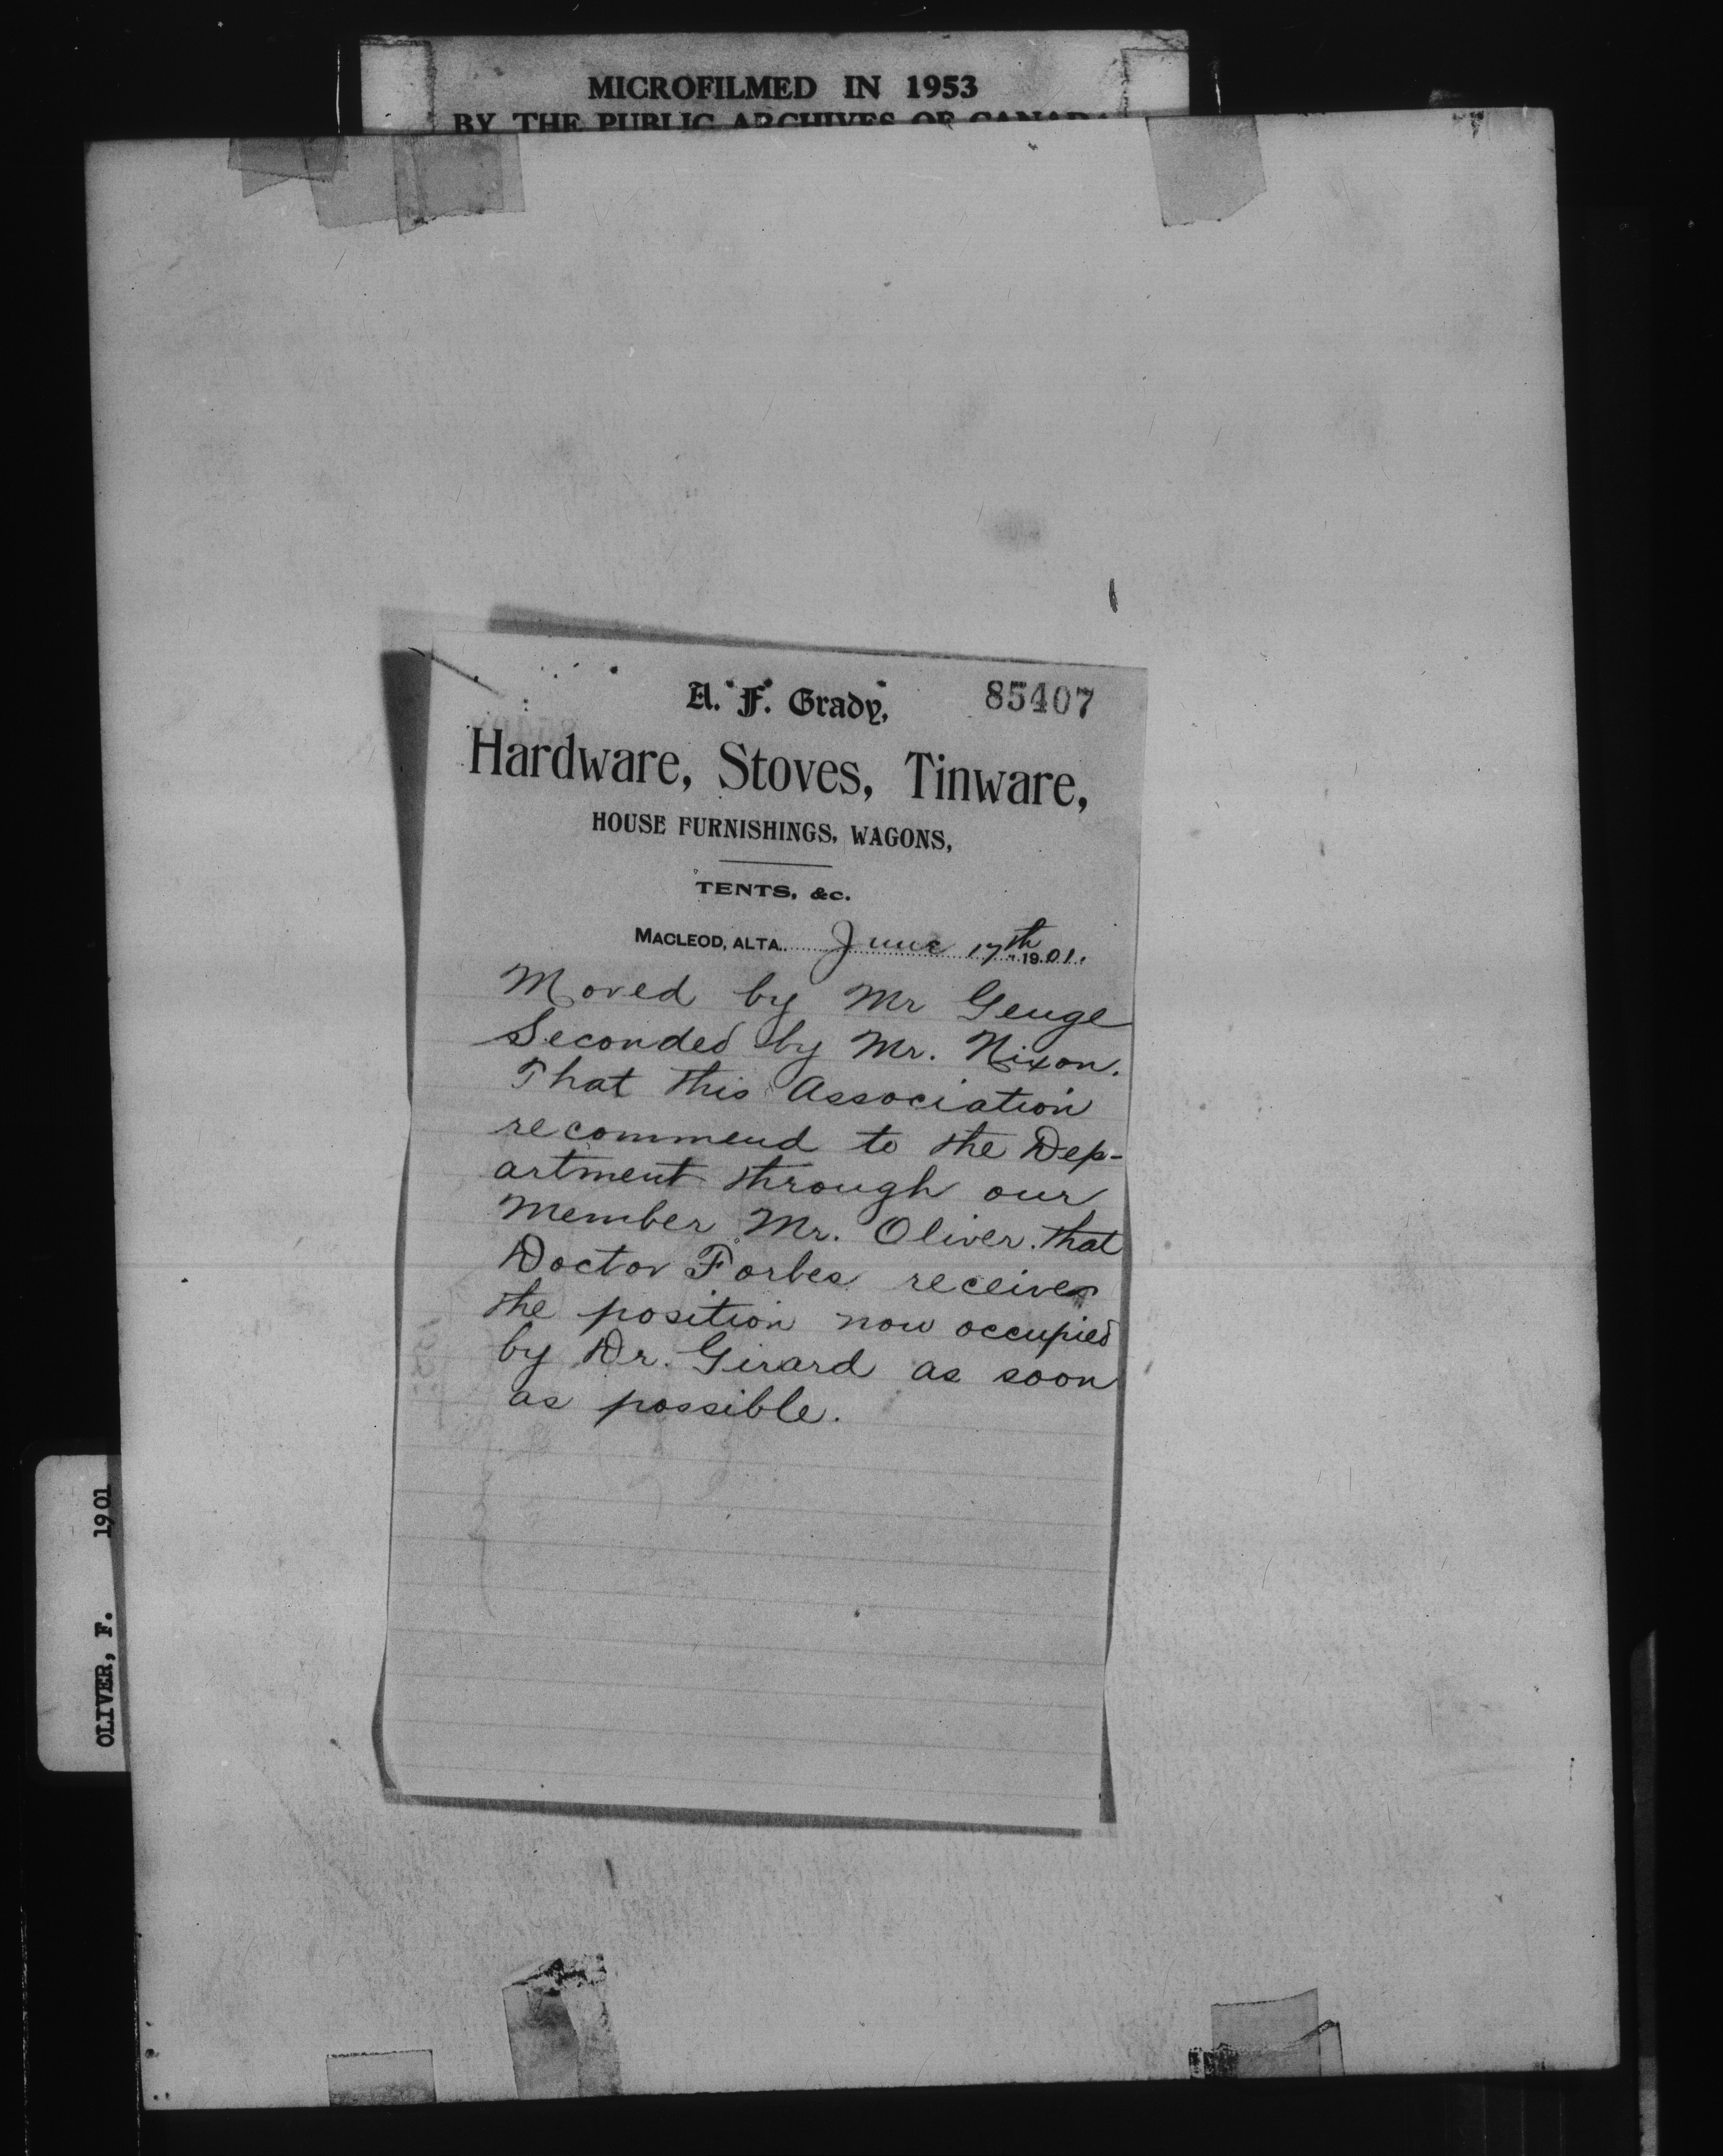 MICROFILMED IN 1953
BY THE PUBLIC ARCHIVES OF CANADA
A. F. Grady,
85407
Hardware, Stoves, Tinware,
HOUSE FURNISHINGS, WAGONS,
TENTS, &c.
MACLEOD, ALTA. June 17th 1901.
Moved by Mr Genge
Seconded by Mr. Nixon.
That this Association
recommend to the Dep-
artment through our
Member Mr. Oliver. that
Doctor Forbes receives
the position now occupied
by Dr. Girard as soon
as possible.
OLIVER, F. 1901